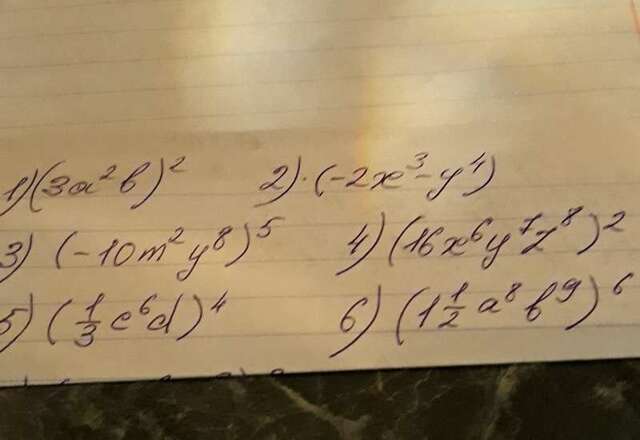 1) (3a²b)² 2) (-2x³-y⁴)
3) (-10m²y⁸)⁵ 4) (16x⁶y⁷z⁸)²
5) (1/3 c⁶d)⁴ 6) (1 1/2 a⁸b⁹)⁶